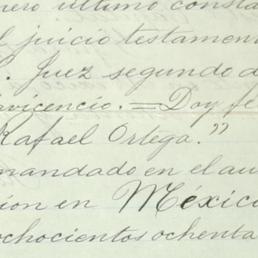 ero último consta
l juicio testament
. Juez segundo d
vicencio.=Doy fe
Rafael Ortega."
mandado en el au
ion en México
ochocientos ochenta